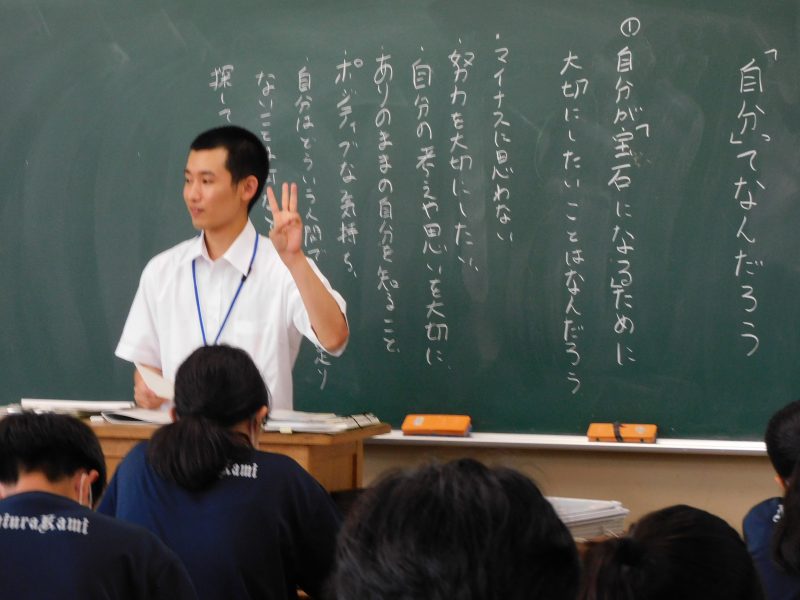 「自分」ってなんだろう
① 自分が「宝石になる」ために
大切にしたいことはなんだろう
・マイナスに思わない
・努力を大切にしたい、
・自分の考えや思いを大切に
・ありのままの自分を知ること、
・ポジティブな気持ち、
・自分はどういう人間で
ないことは
探して